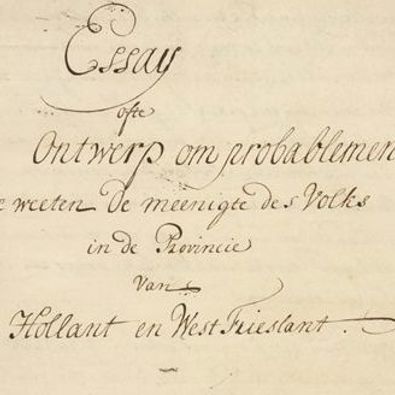 Essay
ofte
Ontwerp om probablemen
te weeten de meenigte des Volks
in de Provincie
van
Hollant en West Frieslant.